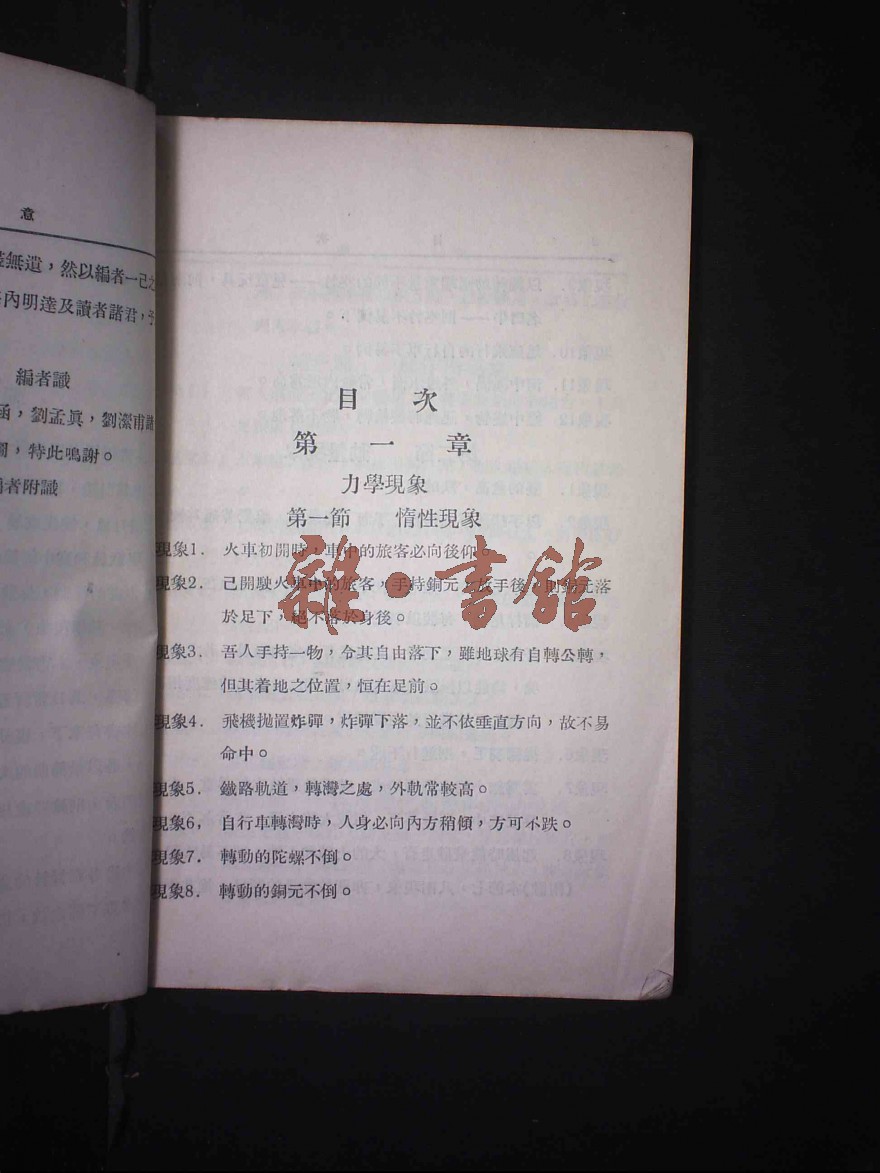 意
無遺，然以編者一己之
內明達及讀者諸君，予
編者識
函，劉孟眞，劉潔甫諸
特此鳴謝。
者附識
目　次
第　一　章
力學現象
第一節　　慣性現象
現象1.　火車初開時，車中的旅客必向後仰。
現象2.　已開駛火車中的旅客，手持銅元，放手後，則銅元落
於足下，絕不落於身後。
現象3.　吾人手持一物，令其自由落下，雖地球有自轉公轉，
但其着地之位置，恒在足前。
現象4.　飛機拋置炸彈，炸彈下落，並不依垂直方向，故不易
命中。
現象5.　鐵路軌道，轉灣之處，外軌常較高。
現象6,　自行車轉灣時，人身必向內方稍傾，方可不跌。
現象7.　轉動的陀螺不倒。
現象8.　轉動的銅元不倒。
雜·書館